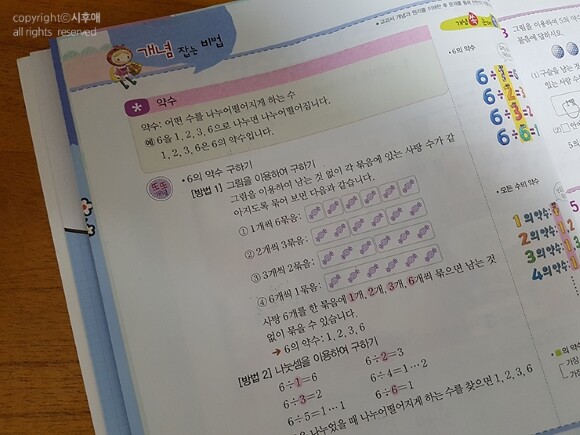 copyright©시후애
all rights reserved
개념 잡는 비법
* 약수
약수: 어떤 수를 나누어떨어지게 하는 수
예 6을 1, 2, 3, 6으로 나누면 나누어떨어집니다.
1, 2, 3, 6은 6의 약수입니다.
• 6의 약수 구하기
[방법 1] 그림을 이용하여 구하기
그림을 이용하여 남는 것 없이 각 묶음에 있는 사탕 수가 같
아지도록 묶어 보면 다음과 같습니다.
① 1개씩 6묶음:
② 2개씩 3묶음:
③ 3개씩 2묶음:
④ 6개씩 1묶음:
사탕 6개를 한 묶음에 1개, 2개, 3개, 6개씩 묶으면 남는 것
없이 묶을 수 있습니다.
→ 6의 약수: 1, 2, 3, 6
[방법 2] 나눗셈을 이용하여 구하기
6÷1=6 6÷2=3
6÷3=2 6÷4=1…2
6÷5=1…1 6÷6=1
나누었을 때 나누어떨어지게 하는 수를 찾으면 1, 2, 3, 6
개념
• 6의 약수
6÷1=6
6÷2=3
6÷3=2
6÷6=1
• 모든 수의 약수
1의 약수:
2의 약수: 1,
3의 약수: 1,
4의 약수: 1,
의 약수
가장
가장
3 그림을 이용하여 5의
물음에 답하시오.
(1) 구슬을 남는 것
있는 사탕
(2)
5의
5